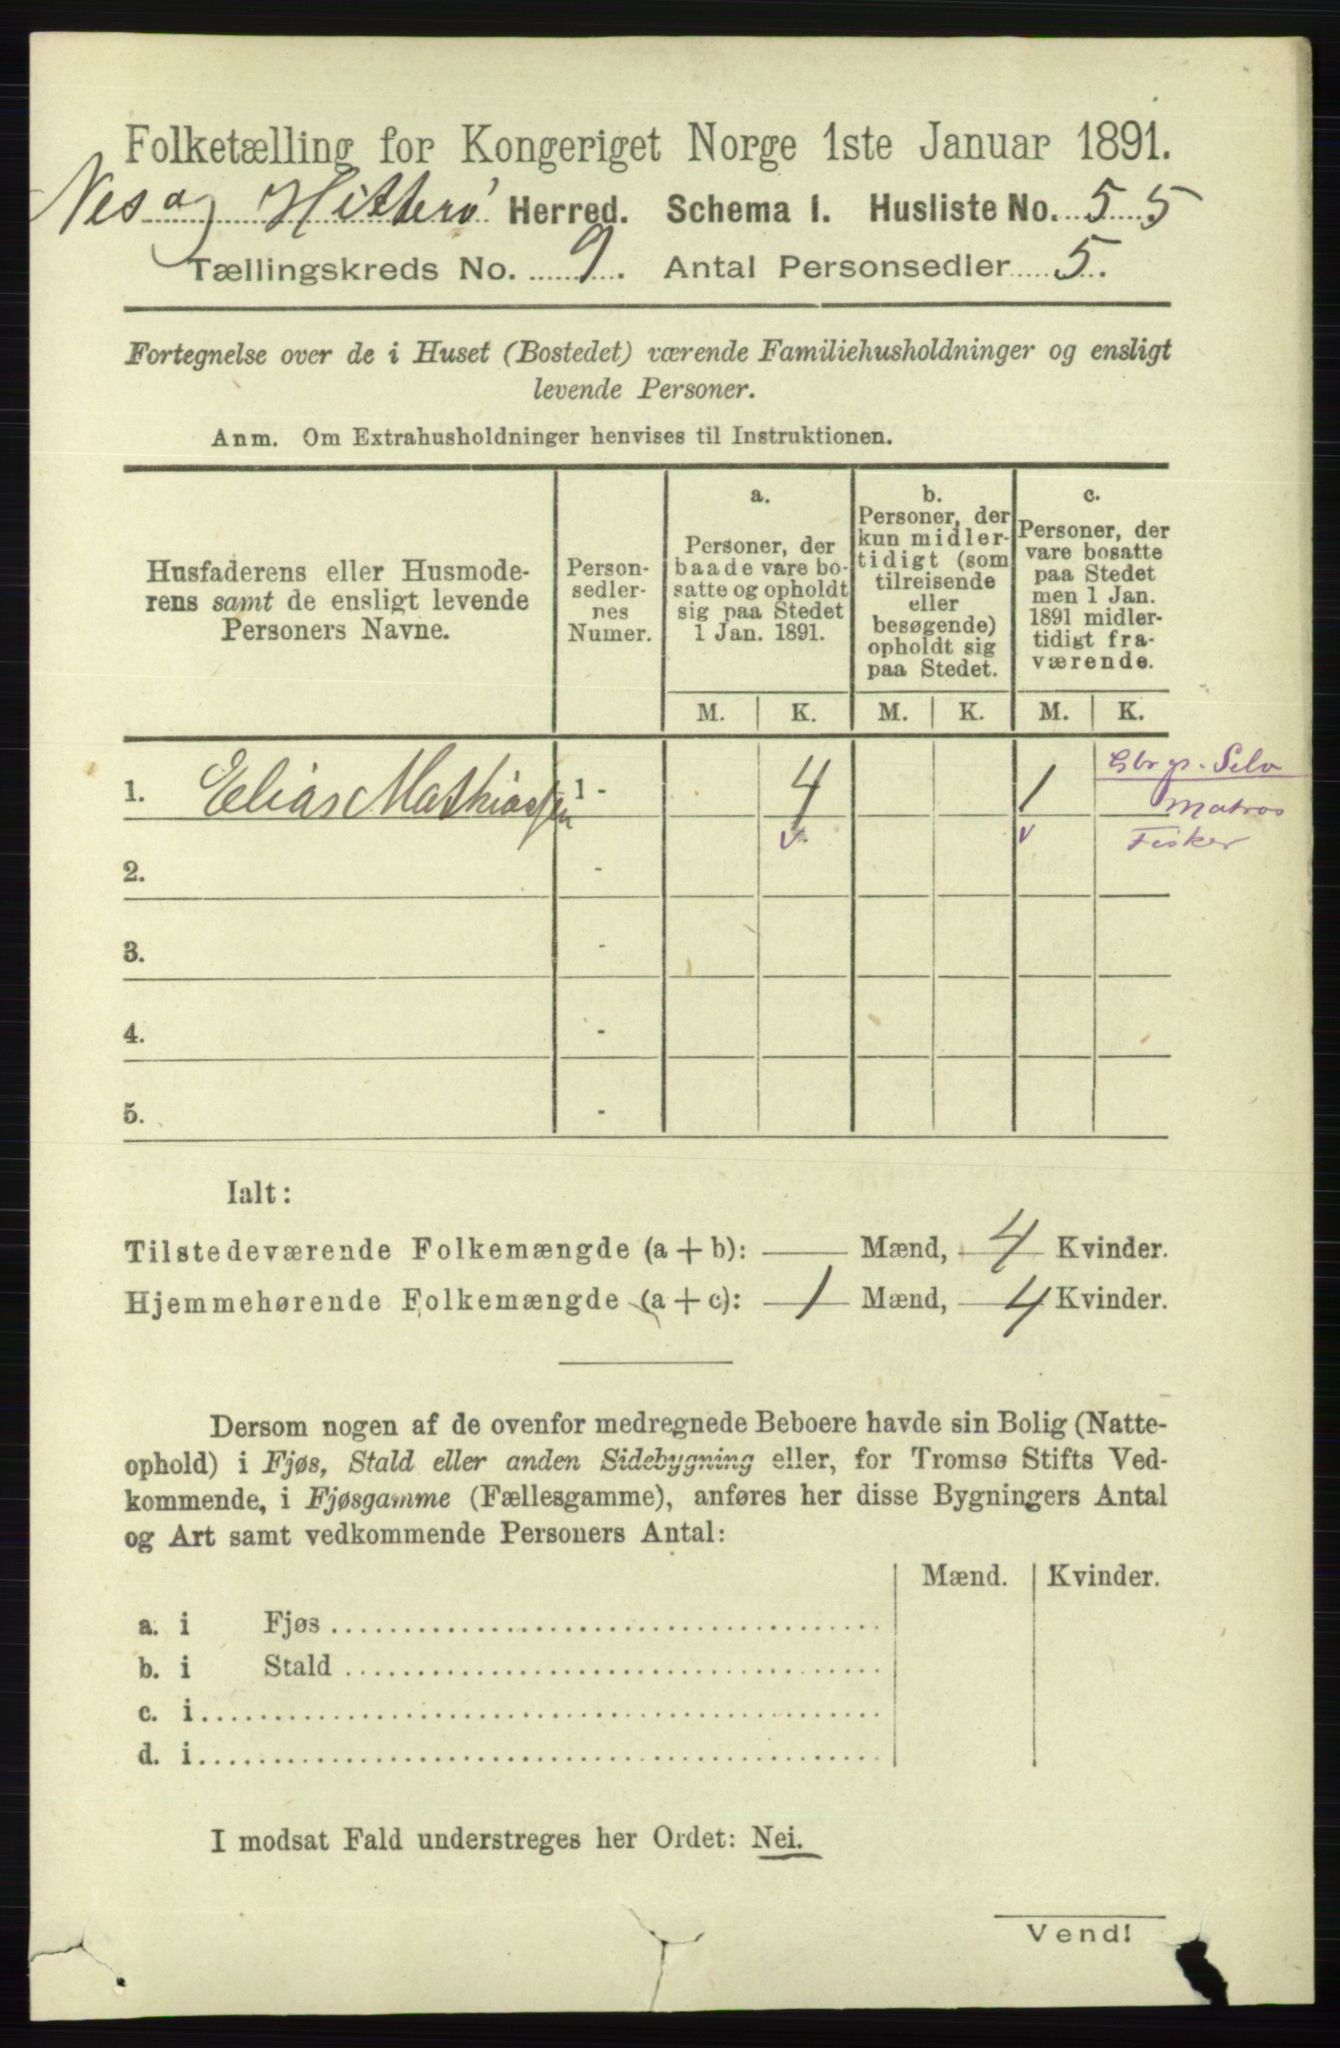 Folketælling for Kongeriget Norge 1ste Januar 1891.
Nes og Hitterø Herred. Schema I. Husliste No. 55
Tællingskreds No. 9. Antal Personsedler 5.
Fortegnelse over de i Huset (Bostedet) værende Familiehusholdninger og ensligt
levende Personer.
Anm. Om Extrahusholdninger henvises til Instruktionen.
Husfaderens eller Husmode-
rens samt de ensligt levende
Personers Navne.
Person-
sedler-
nes
Numer.
a.
Personer, der
baade vare bo-
satte og opholdt
sig paa Stedet
1 Jan. 1891.
b.
Personer, der
kun midler-
tidigt (som
tilreisende
eller
besøgende)
opholdt sig
paa Stedet.
c.
Personer, der
vare bosatte
paa Stedet
men 1 Jan.
1891 midler-
tidigt fra-
værende.
M. K. M. K. M. K.
1. Elias Mathiassen 1 - 4 1 Gbr gs. Selv
Matros
v. v Fisker
2. -
3. -
4. -
5. -
Ialt:
Tilstedeværende Folkemængde (a + b): — Mænd, 4 Kvinder.
Hjemmehørende Folkemængde (a + c): 1 Mænd, 4 Kvinder.
Dersom nogen af de ovenfor medregnede Beboere havde sin Bolig (Natte-
ophold) i Fjøs, Stald eller anden Sidebygning eller, for Tromsø Stifts Ved-
kommende, i Fjøsgamme (Fællesgamme), anføres her disse Bygningers Antal
og Art samt vedkommende Personers Antal:
Mænd. Kvinder.
a. i Fjøs
b. i Stald
c. i
d. i
I modsat Fald understreges her Ordet: Nei.
Vend!